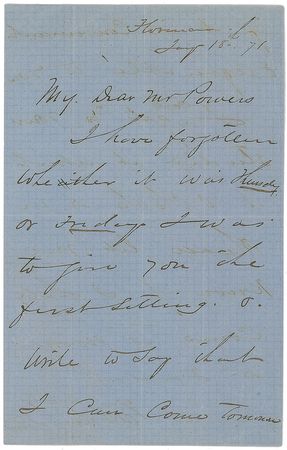 Florence
15. 71
My Dear Mr Powers
I have forgotten
whether it was Thursday
or Friday I was
to give you the
first sitting.
write to say that
I can come tomorrow